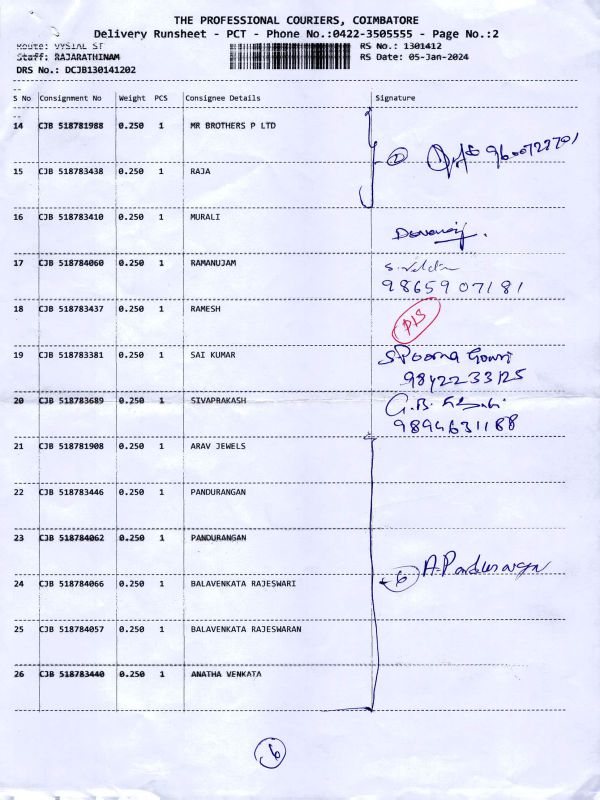 THE PROFESSIONAL COURIERS, COIMBATORE
Delivery Runsheet - PCT - Phone No.:0422-3505555 - Page No.:2
Route: VYSIAL ST RS No.: 1301412
Staff: RAJARATHINAM RS Date: 05-Jan-2024
DRS No.: DCJB130141202
S No Consignment No Weight PCS Consignee Details Signature
14 CJB 518781988 0.250 1 MR BROTHERS P LTD
2 9600722701
15 CJB 518783438 0.250 1 RAJA
16 CJB 518783410 0.250 1 MURALI
17 CJB 518784060 0.250 1 RAMANUJAM
9865907181
18 CJB 518783437 0.250 1 RAMESH
19 CJB 518783381 0.250 1 SAI KUMAR S.Poorna Gowri
9842233125
20 CJB 518783689 0.250 1 SIVAPRAKASH G.B.
9894631188
21 CJB 518781908 0.250 1 ARAV JEWELS
22 CJB 518783446 0.250 1 PANDURANGAN
23 CJB 518784062 0.250 1 PANDURANGAN
24 CJB 518784066 0.250 1 BALAVENKATA RAJESWARI 6 A.Pandurangan
25 CJB 518784057 0.250 1 BALAVENKATA RAJESWARAN
26 CJB 518783440 0.250 1 ANATHA VENKATA
6